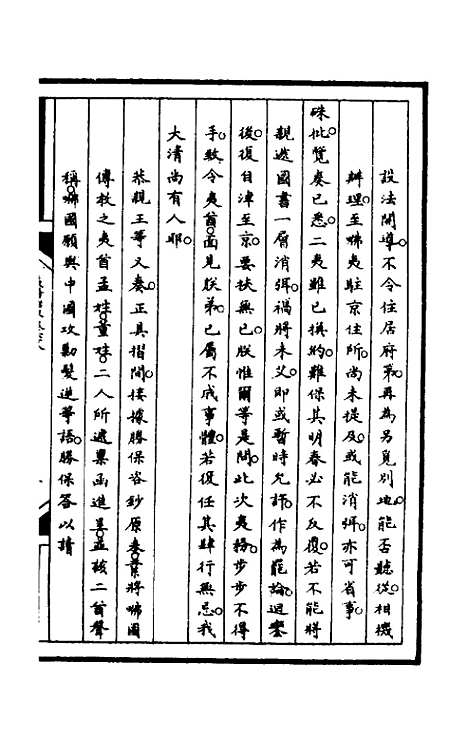 設法開導。不令住居府第。再為另覓別地。能否聽從。相機
辦理。至㗲夷駐京住所。尚未提及。或能消弭。亦可省事。
硃批。覽奏已悉。二夷雖已換約。難保其明春必不反覆。若不能將
親遞國書一層消弭。禍將未艾。即或暫時允許。作為罷論。迴鑾
後。復自津至京。要挾無已。朕惟爾等是問。此次夷務。步步不得
手。致令夷酋。面見朕弟。已屬不成事體。若復任其肆行無忌。我
大清尚有人耶。
恭親王等又奏。正具摺間。接據勝保咨鈔原奏。業將㗲國
傳教之夷酋孟姓。董姓。二人所遞稟函進呈。並該二酋聲
稱。㗲國願與中國攻勦髮逆等語。勝保答以請